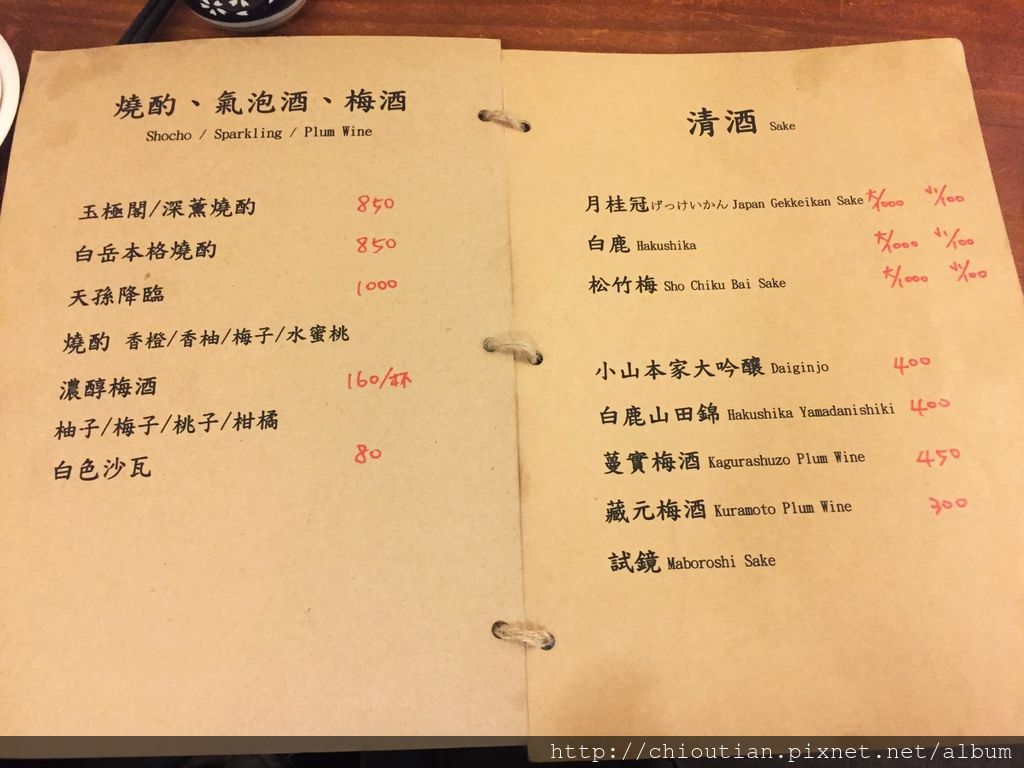 燒酌、氣泡酒、梅酒
Shocho / Sparkling / Plum Wine
玉極閣/深薰燒酌 850
白岳本格燒酌 850
天孫降臨 1000
燒酌 香橙/香柚/梅子/水蜜桃
濃醇梅酒 160/杯
柚子/梅子/桃子/柑橘
白色沙瓦 80
清酒 Sake
月桂冠げっけいかん Japan Gekkeikan Sake 大/1000 小/100
白鹿 Hakushika 大/1000 小/100
松竹梅 Sho Chiku Bai Sake 大/1000 小/100
小山本家大吟釀 Daiginjo 400
白鹿山田錦 Hakushika Yamadanishiki 400
蔓實梅酒 Kagurashuzo Plum Wine 450
藏元梅酒 Kuramoto Plum Wine 300
試鏡 Maboroshi Sake
http://chioutian.pixnet.net/album